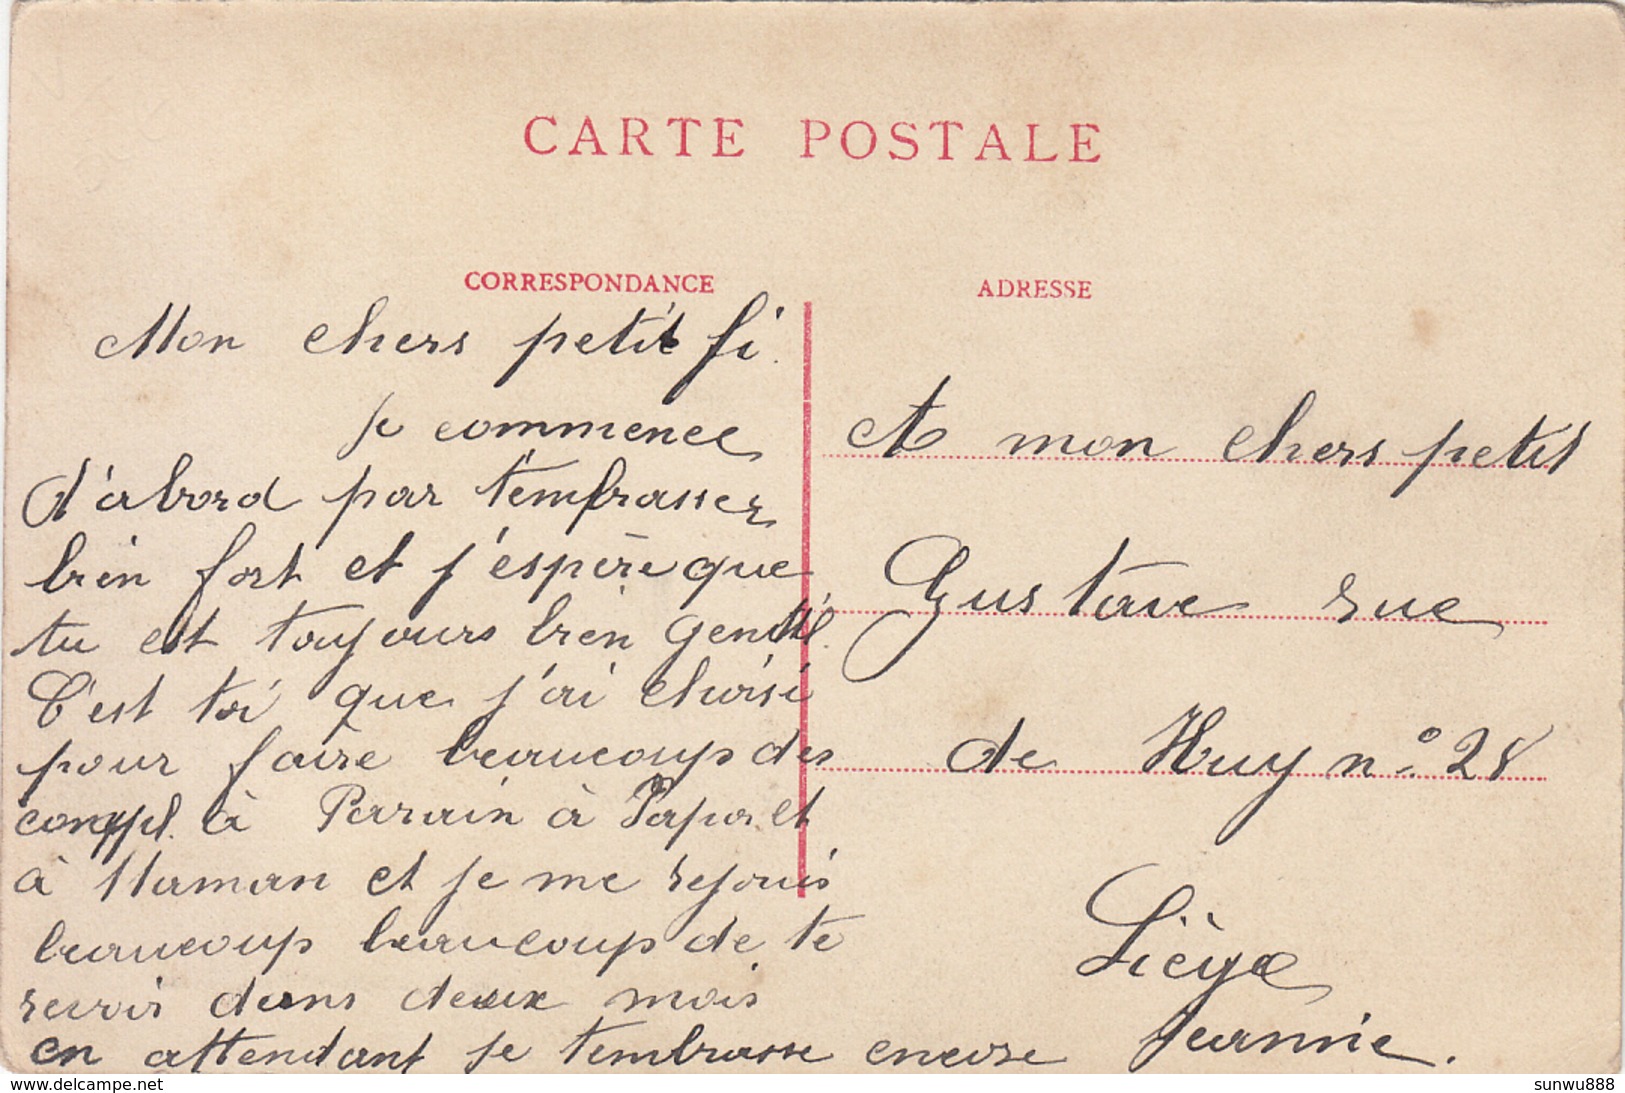 CARTE POSTALE
CORRESPONDANCE
Mon chers petit fi.
je commence
d'abord par t'embrasser
bien fort et j'espère que
tu est toujours bien gentil.
C'est toi que j'ai choisi
pour faire beaucoup des
compl. à Parrain à Papa et
à Maman et je me rejouis
beaucoup beaucoup de te
revoir dans deux mois
en attendant je t'embrasse encore Jeannie.
ADRESSE
A mon chers petit
Gustave rue
de Huy n° 28
Liège
delcampe.net
sunwu888